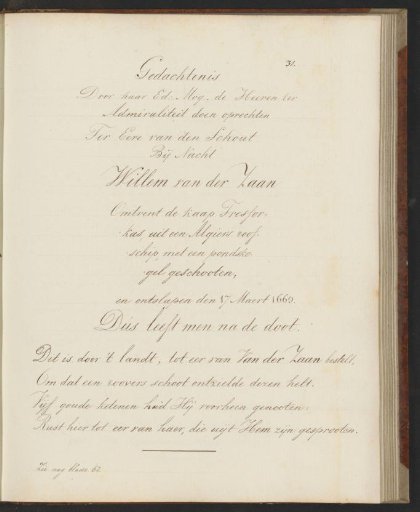 31.
Gedachtenis
Door haar Ed: Mog. de Heeren ter
Admiraliteit doen oprechten
Ter Eere van den Schout
Bij Nacht
Willem van der Zaan
Omtrent de kaap Tresfor-
kas, uit een Algiers roof
schip met een pondsko
gel geschooten,
en ontslapen den 17 Maert 1669.
Dus leeft men na de doot.
Dit is door 't landt, tot eer van Van der Zaan bestelt,
Om dat een roovers schoot ontzielde dezen helt.
Vijf goude ketenen had Hij voorheen genooten:
Rust hier tot eer van haer, die uyt Hem zijn gesprooten.
Zie nog bladz. 62.